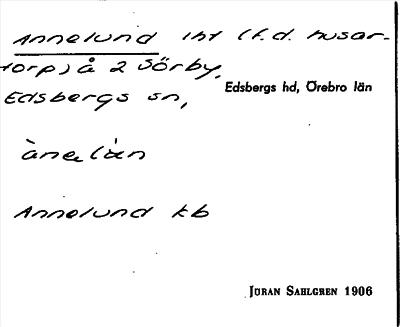 Annelund lht (f.d. husar-
torp) å 2 Sörby,
Edsbergs hd, Örebro län
Edsbergs sn,
Annelund kb
JÖRAN SAHLGREN 1906